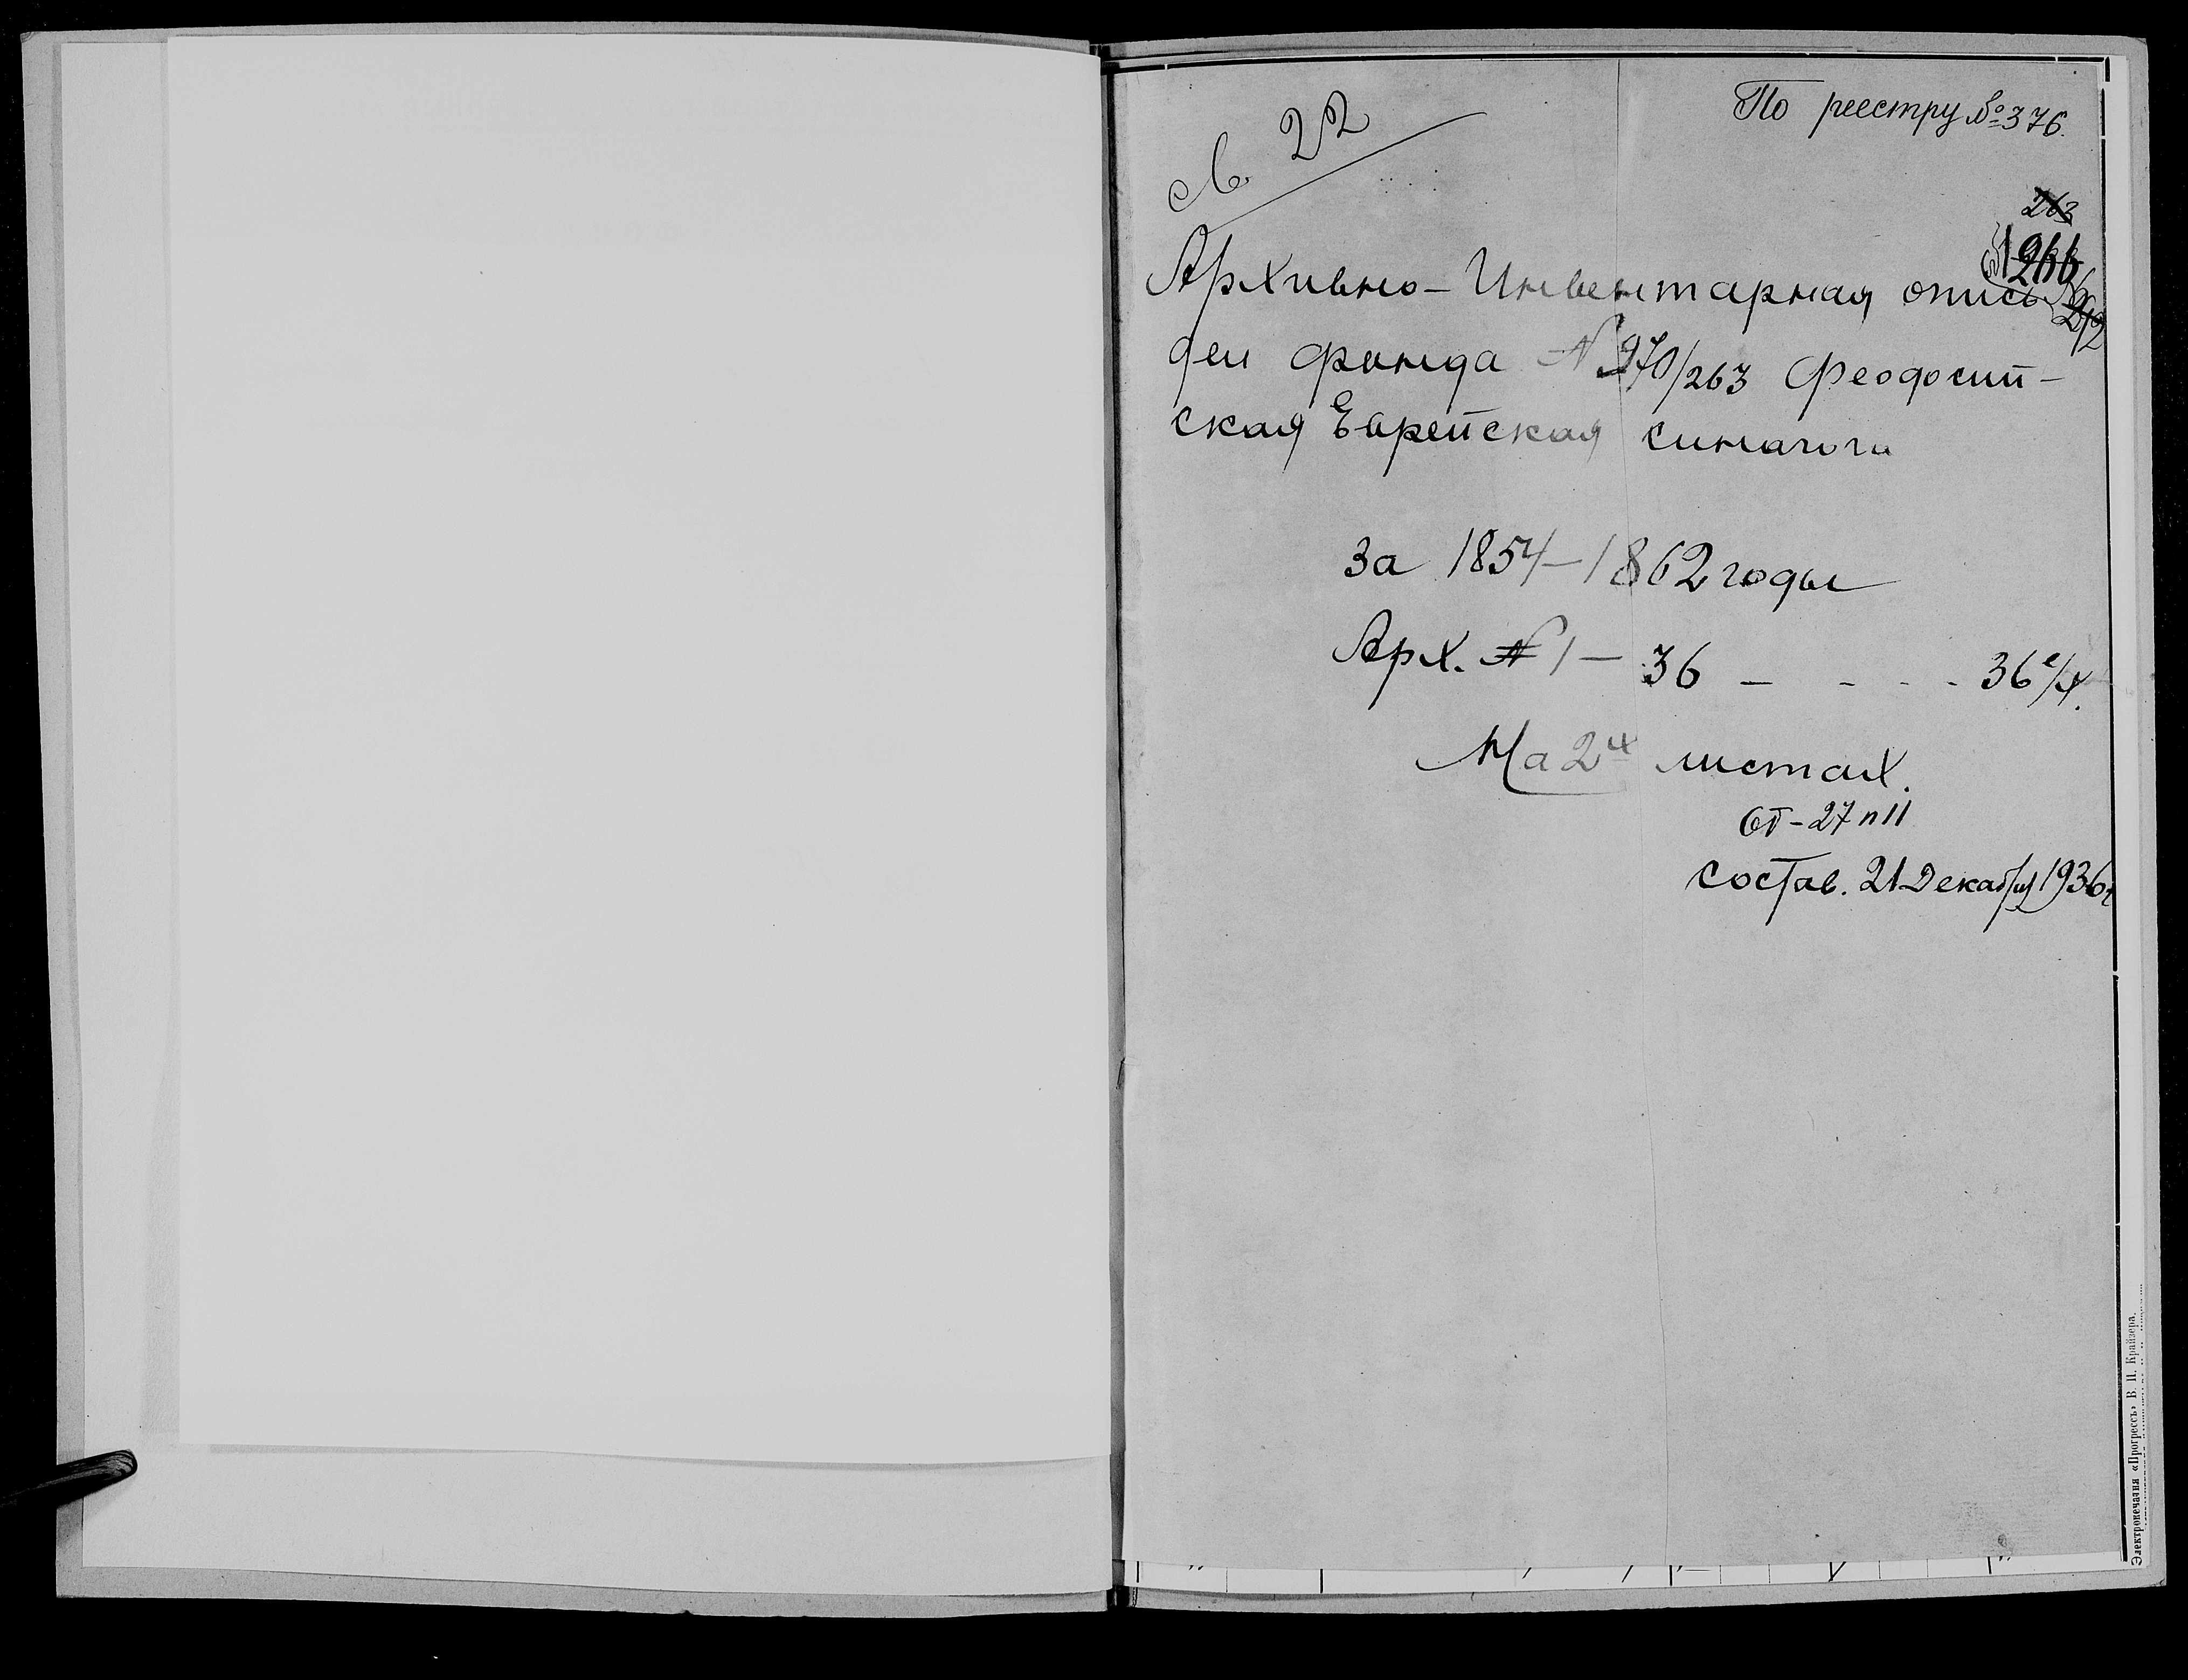 По реестру № 376.
№ 22
263
266
Архивно-Инвентарная опись
дел фонда N 970/263 Феодосий-
ская Еврейская синагога
за 1854-1862 годы
Арх. N 1 - 36 - - - - 36 е/х.
На 2х листах.
состав. 21 Декабря 1936 г
Электропечатня «Прогрессъ» В. П. Крайзера.